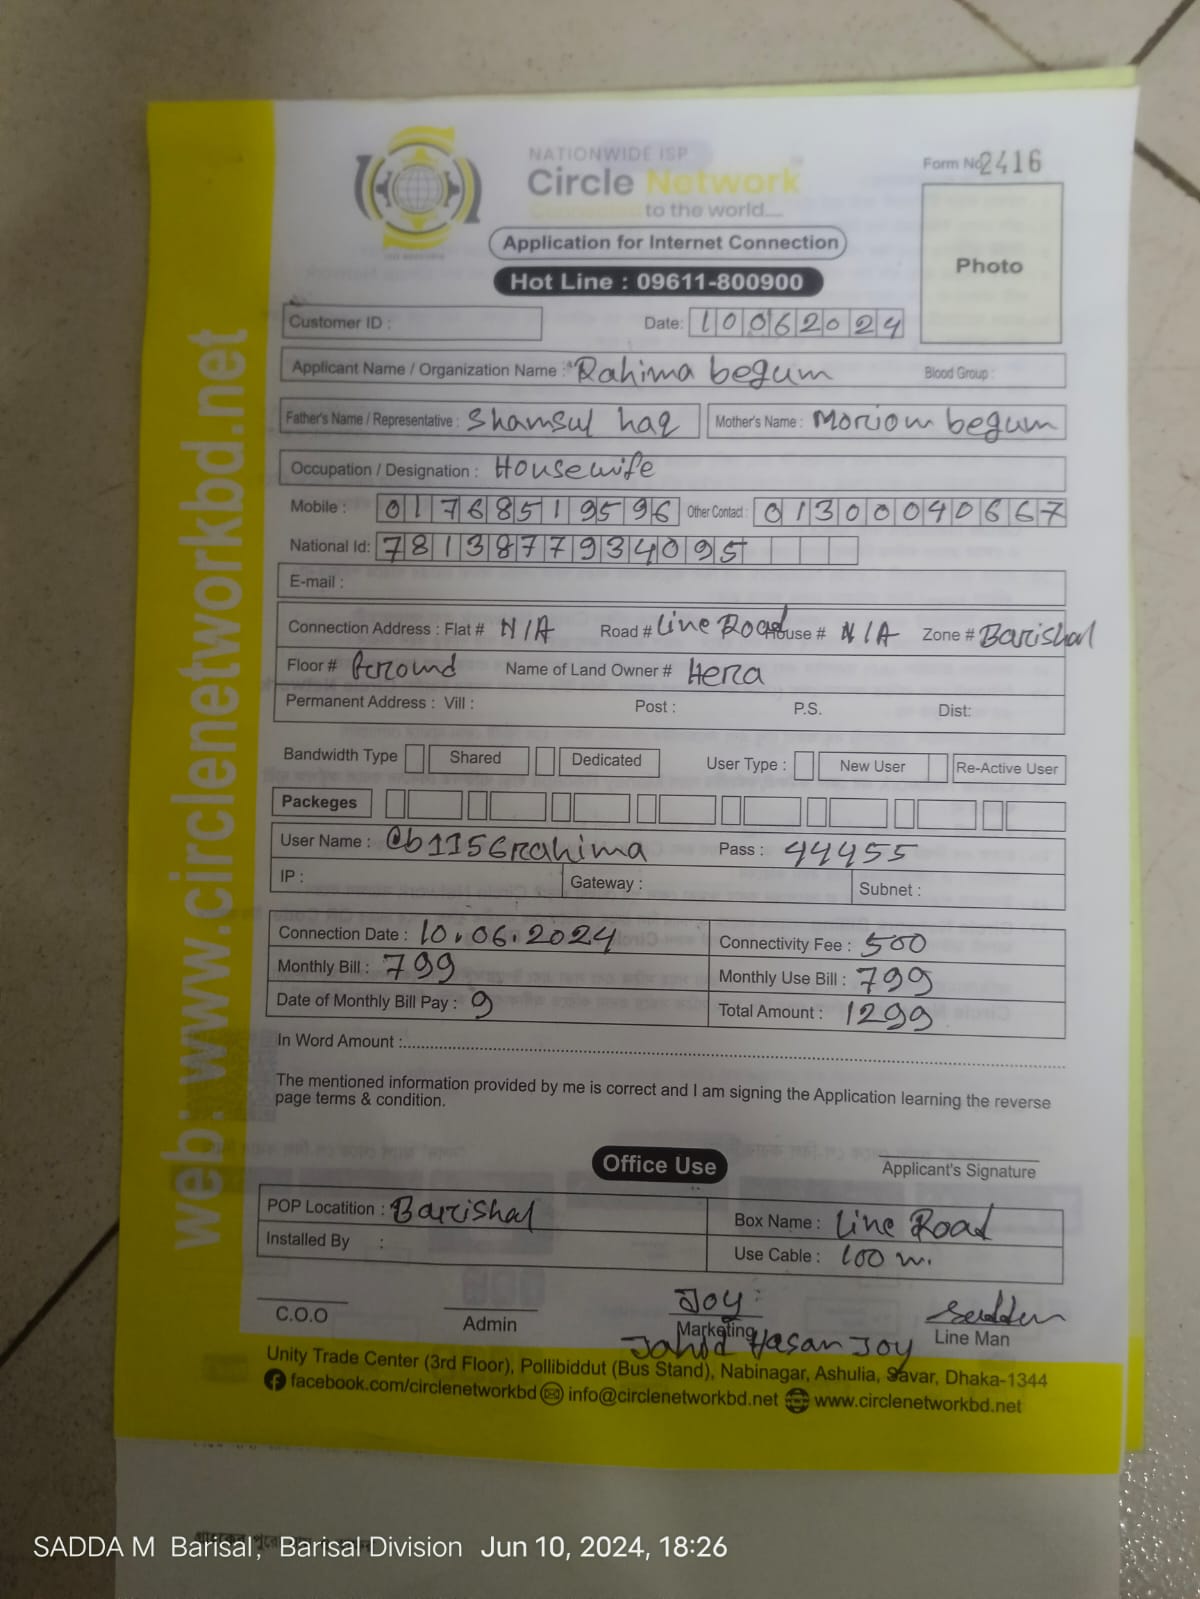 NATIONWIDE ISP
Circle Network
Connected to the world....
Form No 2416
Application for Internet Connection
Hot Line : 09611-800900
Photo
Customer ID :
Date: 10062024
Applicant Name / Organization Name : Rahima begum Blood Group :
Father's Name / Representative : Shamsul haq Mother's Name : Moriom begum
Occupation / Designation : Housewife
Mobile : 01768519596 Other Contact : 01300040667
National Id: 7813877934095
E-mail :
Connection Address : Flat # N/A Road # Line Road House # N/A Zone # Barishal
Floor # Ground Name of Land Owner # Hera
Permanent Address : Vill : Post : P.S. Dist:
Bandwidth Type Shared Dedicated User Type : New User Re-Active User
Packeges
User Name : @b1156rahima Pass : 44455
IP : Gateway : Subnet :
Connection Date : 10.06.2024 Connectivity Fee : 500
Monthly Bill : 799 Monthly Use Bill : 799
Date of Monthly Bill Pay : 9 Total Amount : 1299
In Word Amount :
The mentioned information provided by me is correct and I am signing the Application learning the reverse
page terms & condition.
Office Use
Applicant's Signature
POP Locatition : Barishal Box Name : Line Road
Installed By : Use Cable : 100 m.
Joy:
C.O.O Admin Marketing Line Man
Jahid Hasan Joy
Unity Trade Center (3rd Floor), Pollibiddut (Bus Stand), Nabinagar, Ashulia, Savar, Dhaka-1344
facebook.com/circlenetworkbd info@circlenetworkbd.net www.circlenetworkbd.net
web: www.circlenetworkbd.net
SADDA M Barisal, Barisal Division Jun 10, 2024, 18:26